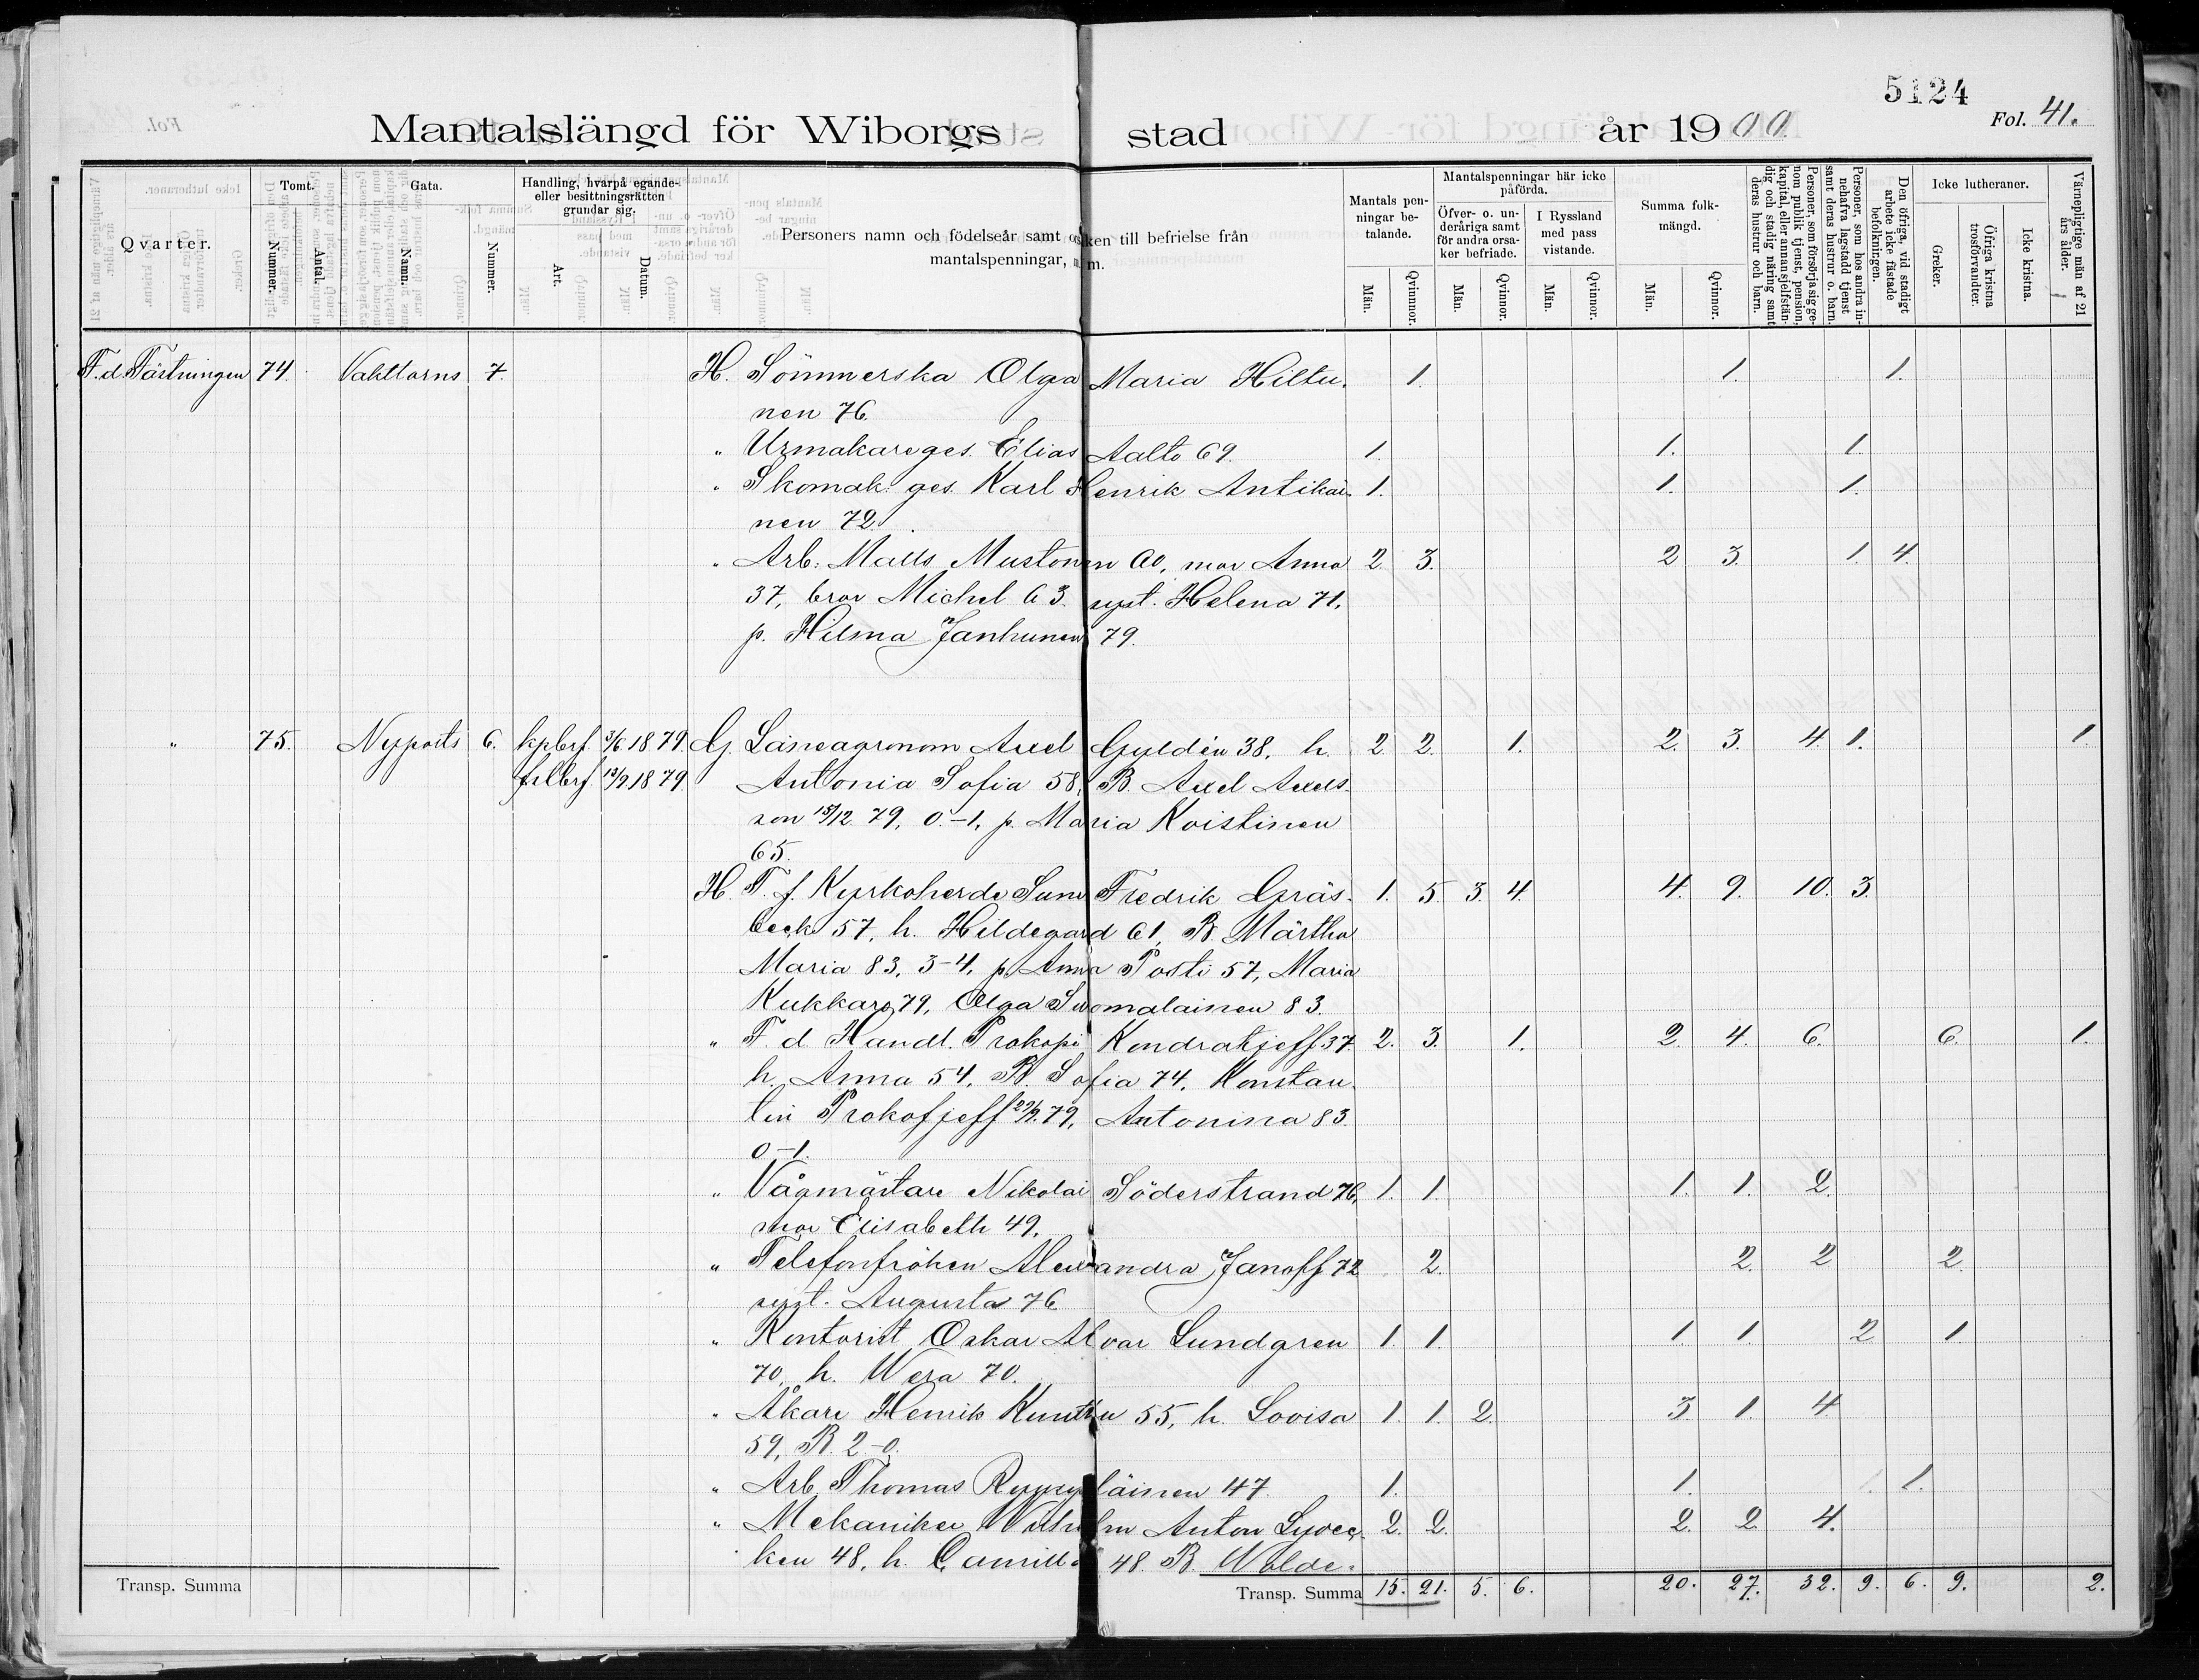 5124
Fol. 41.
Mantalslängd för Wiborgs stad år 1900
Qvarter.
Tomt.
Nummer.
Antal.
Gata.
Namn.
Nummer.
Handling, hvarpå egande- eller besittningsrätten grundar sig.
Art.
Datum.
Personers namn och födelseår samt orsaken till befrielse från mantalspenningar, m. m.
Mantals penningar betalande.
Män.
Qvinnor.
Mantalspenningar här icke påförda.
Öfver- o. underåriga samt för andra orsaker befriade.
Män.
Qvinnor.
I Ryssland med pass vistande.
Män.
Qvinnor.
Summa folkmängd.
Män.
Qvinnor.
Personer, som försörja sig genom publik tjenst, pension, kapital, eller annan sjelfständig och stadig näring samt deras hustrur och barn.
Personer, som hos andra innehafva lagstadd tjenst samt deras hustrur o. barn.
Den öfriga, vid stadigt arbete icke fästade befolkningen.
Icke lutheraner.
Greker.
Öfriga kristna trosförvandter.
Icke kristna.
Värnepligtige män af 21 års ålder.
F.d. Fästningen 74. Vakttorns 7. H. Sömmerska Olga Maria Hiltu- 1. 1. 1.
nen 76.
" Urmakareges. Elias Aalto 69. 1. 1. 1.
" Skomak. ges. Karl Henrik Antikai- 1. 1. 1.
nen 72.
" Arb. Matts Mustonen 60, mor Anna 2. 3. 2 3. 1. 4.
37, bror Michel 63. syst. Helena 71,
p. Hilma Janhunen 79.
" 75. Nyports 6. kpbrf. 3/6 1879. G. Länsagronom Axel Gyldén 38. h. 2. 2. 1. 2. 3. 4. 1. 1.
fstbrf. 13/9 1879. Antonia Sofia 58, B. Axel Axels-
son 18/12 79, 0-1, p. Maria Koistinen
65.
H. T. f. Kyrkoherde Sum Fredrik Gräs- 1. 5. 3. 4. 4. 9. 10. 3.
beck 57, h. Hildegard 61, B. Märtha
Maria 83, 3-4, p. Anna Posti 57, Maria
Kukkaro 79, Olga Suomalainen 83.
" F. d. Handl. Prokopi Kondratjeff 37. 2. 3. 1. 2. 4. 6. 6. 1.
h. Anna 54. B. Sofia 74, Konstan-
tin Prokofjeff 79, Antonina 83.
0-1.
" Vågmästare Nikolai Söderstrand 76, 1. 1. 1. 1. 2.
mor Elisabeth 49.
" Telefonfröken Alexandra Janoff 72 2. 2. 2 2.
syst. Augusta 76.
" Kontorist Oskar Alvar Lundgren 1. 1. 1. 1. 2 1.
70, h. Wera 70.
" Åkare Henrik Kunttu 55, h. Lovisa 1. 1. 2. 3. 1. 4.
59, B. 2-0.
" Arb. Thomas 47. 1. 1. 1.
" Mekaniker Wilhelm Anton Lyyec- 2. 2. 2. 2. 4.
ken 48, h. Camilla 48. B. Walde-
Transp. Summa Transp. Summa 15. 21. 5. 6. 20. 27. 32. 9. 6. 9. 2.